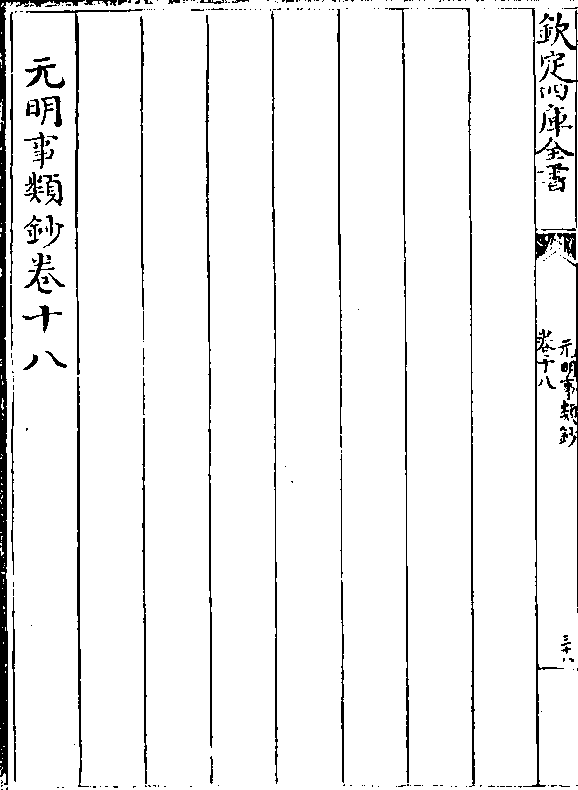 欽定四庫全書
元明事類鈔
卷十八
元明事類鈔卷十八